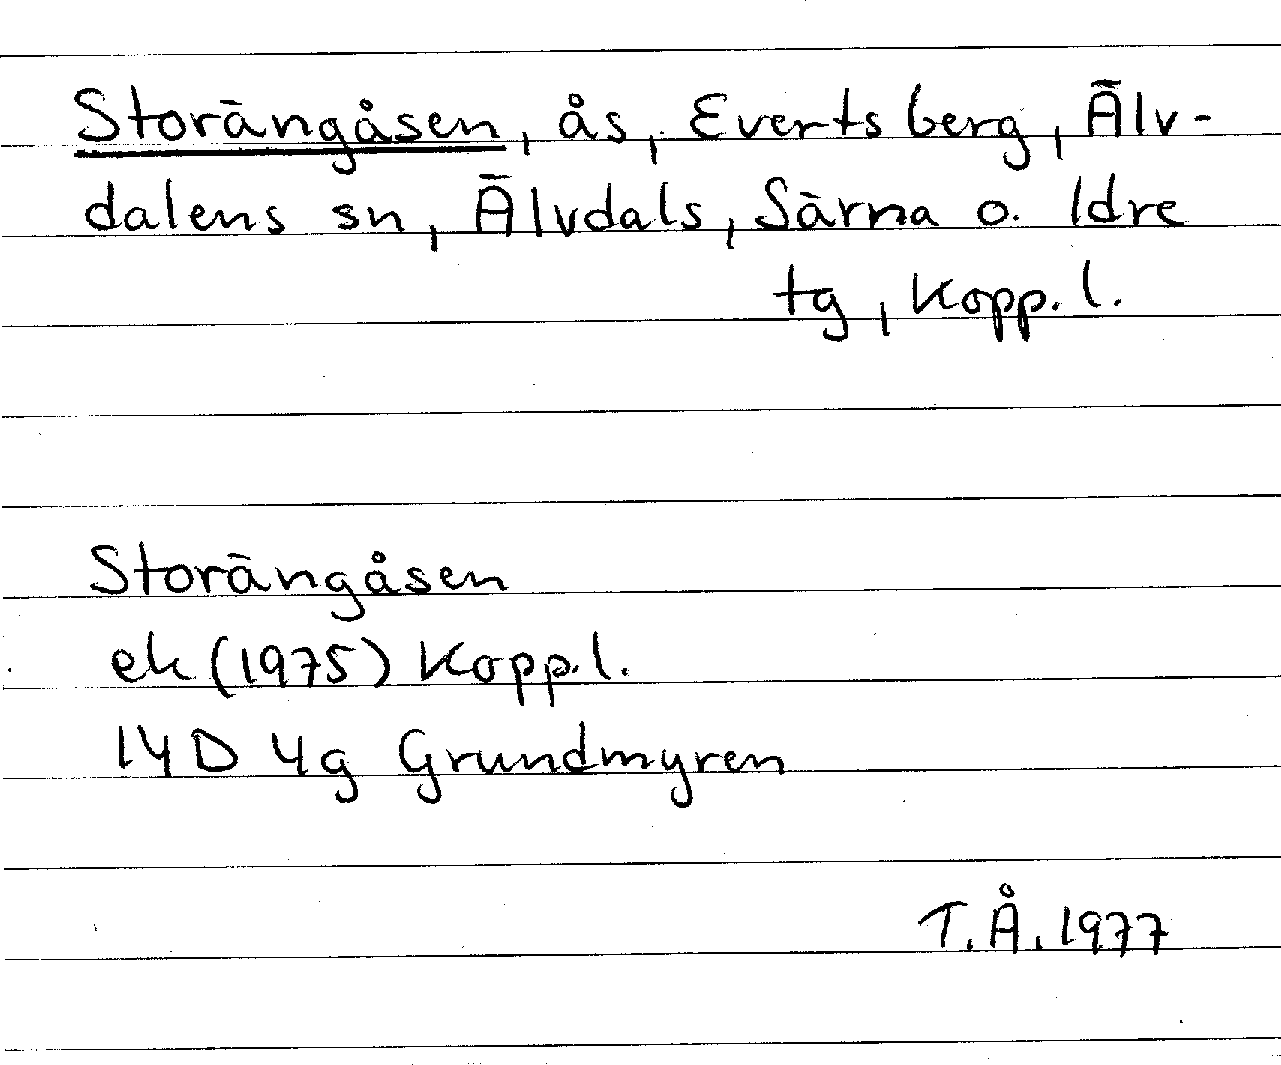 Storängåsen, ås, Evertsberg, Älv-
dalens sn, Älvdals, Särna o. Idre
tg, Kopp. l.
Storängåsen
ek (1975) Kopp. l.
14D 4g Grundmyren
T.Å. 1977